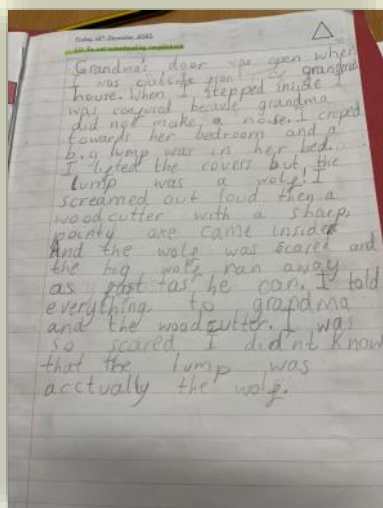 Friday 10th December 2021
Grandma's door was open when
I was outside grandma
house. When I stepped inside I
was confused because grandma
did not make a noise. I creped
towards her bedroom and a
big lump was in her bed...
I lifted the covers but the
lump was a wolf! I
screamed out loud then a
woodcutter with a sharp,
pointy axe came inside
And the wolf was scared and
the big wolf ran away
as fast as he can. I told
everything to grandma
and the woodcutter. I was
so scared I did'nt know
that the lump was
acctually the wolf.